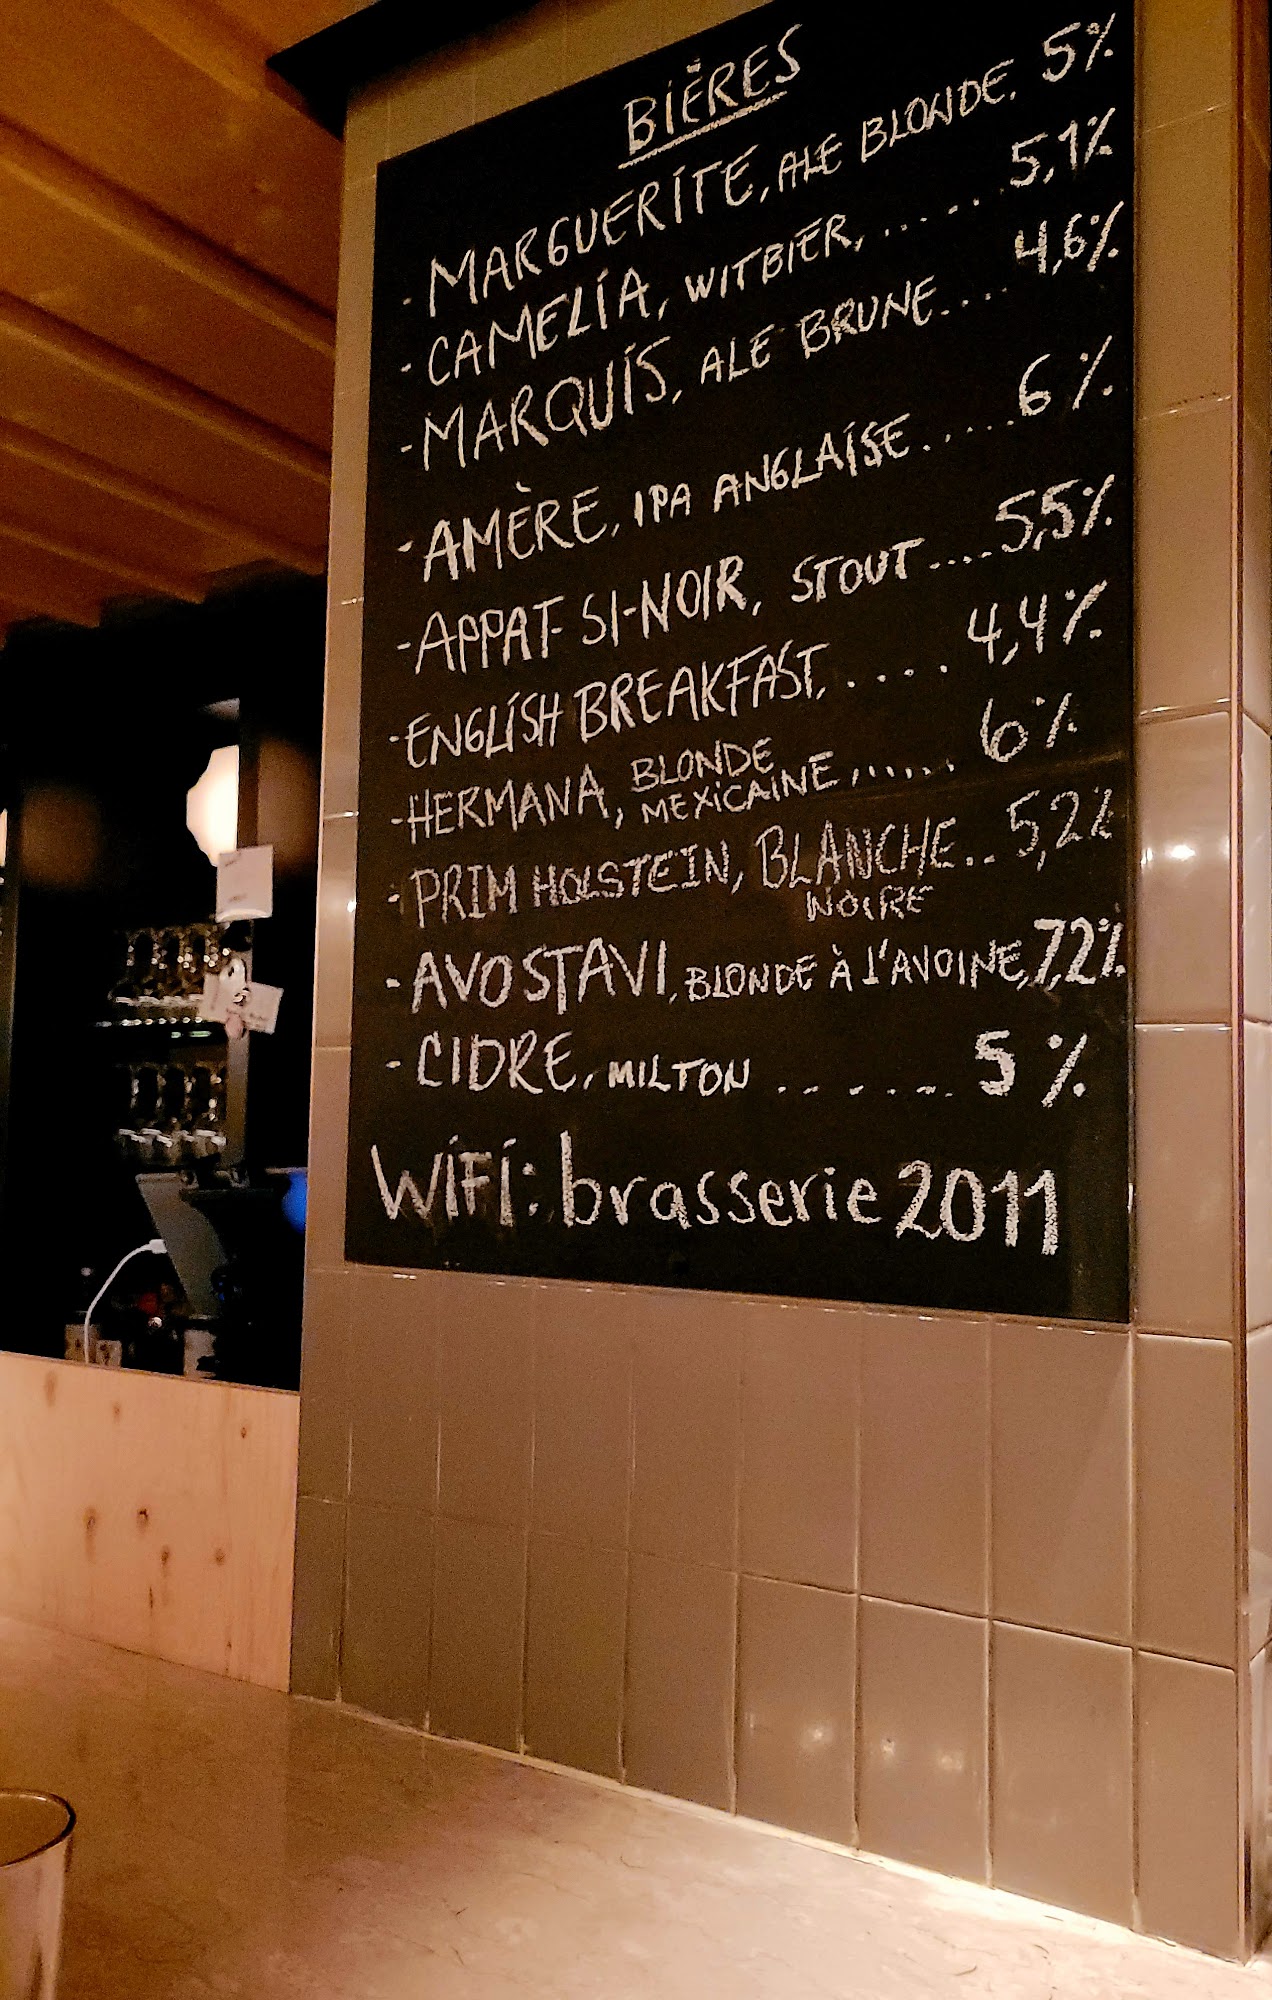 BIÈRES
- MARGUERITE, ALE BLONDE. 5%
- CAMELIA, WITBIER, ...... 5,1%
- MARQUIS, ALE BRUNE.... 4,6%
- AMÈRE, IPA ANGLAISE..... 6%
- APPAT-SI-NOIR, STOUT.... 5,5%
- ENGLISH BREAKFAST, .... 4,4%
- HERMANA, BLONDE MEXICAINE,...... 6%
- PRIM HOLSTEIN, BLANCHE.. 5,2%
NOIRE
- AVOSTAVI, BLONDE À L'AVOINE, 7,2%
- CIDRE, MILTON ....... 5%
WIFI: brasserie2011